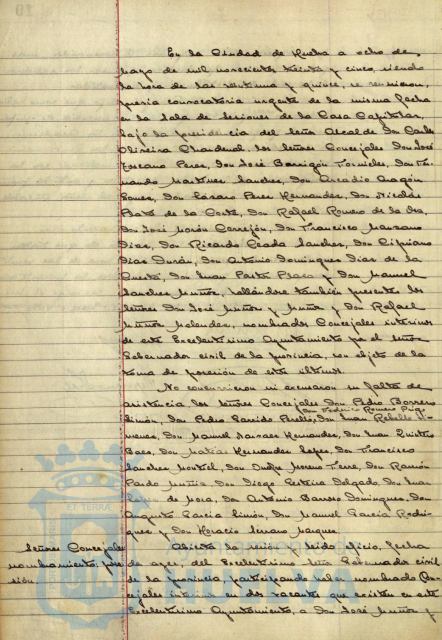 En la Ciudad de Huelva a ocho de
Mayo de mil novecientos treinta y cinco, siendo
la hora de las veintiuna y quince, se reunieron,
previa convocatoria urgente de la misma fecha
en la Sala de Sesiones de la Casa Capitular,
bajo la presidencia del Señor Alcalde Don Carlos
Oliveira Chardenal los Señores Concejales Don José
Toscano Perez, Don José Barrigón Fornieles, Don Fer-
nando Martinez Sanchez, Don Arcadio Aragón
Gomez, Don Lázaro Perez Hernandez, Don Nicolás
Prat de la Corte, Don Rafael Romero de la Osa,
Don José Morón Cerrejón, Don Francisco Manzano
Diaz, Don Ricardo Ceada Sanchez, Don Cipriano
Diaz Durán, Don Antonio Dominguez Diaz de la
Cuesta, Don Juan Plaza y Don Manuel
Sanchez Muñoz, hallándose también presentes los
Señores Don José Muñoz y Muñoz y Don Rafael
Muñoz nombrados Concejales interinos
de este Excelentisimo Ayuntamiento por el Señor
Gobernador civil de la provincia, con objeto de la
toma de posesión de estos ultimos.
No concurrieron ni excusaron su falta de
asistencia los Señores Concejales Don Pedro Borrero
Don Federico Romero
Limón, Don Pedro Garrido Perelló, Don Juan Rebollo Ji-
menez, Don Manuel Hernandez, Don Juan Quintero
Baez, Don Matías Hernandez Lopez, Don Francisco
Sanchez Montiel, Don Duque Moreno Ferre, Don Ramón
Pardo Muñiz, Don Diego Delgado, Don Juan
de Mora, Don Antonio Barroso Dominguez, Don
Augusto García Limón, Don Manuel García Rodri-
guez y Don Horacio Serrano Marquez.
Señores Concejales
nombramiento, pose-
sión
Abierta la sesión y leido oficio, fecha
de ayer, del Excelentisimo Señor Gobernador civil
de la provincia, participando haber nombrado Con-
cejales interinos en dos vacantes que existen en este
Excelentisimo Ayuntamiento, a Don José Muñoz y
ET TERRAE
HUELVA